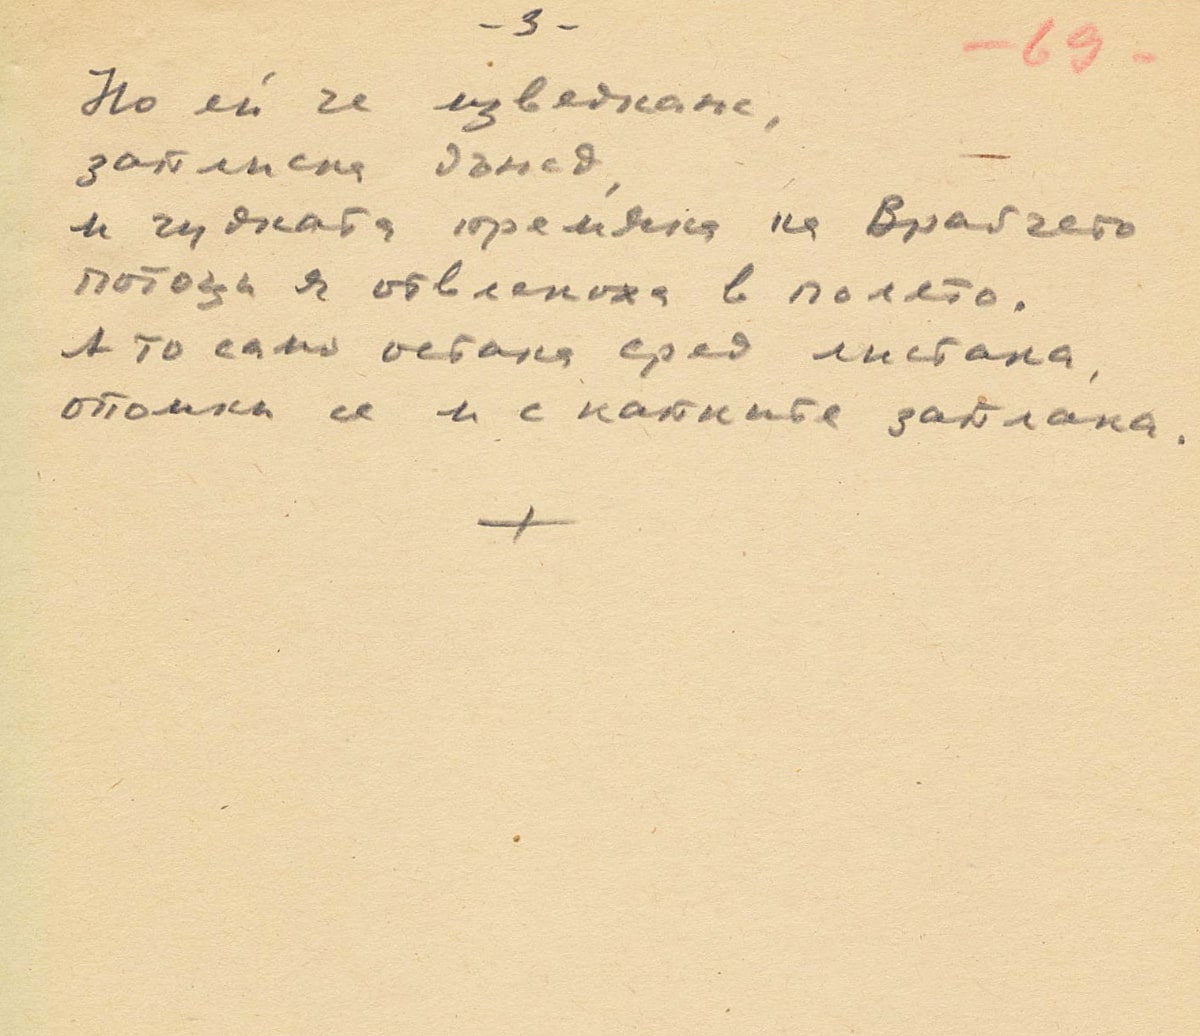 -3-
-69-
Но ей че изведнаж,
заплиска дъжд,
и чудната премяна на Врабчето
потоци я отвлекоха в полето.
А то само остана сред листака,
опомни се и с капките заплака.